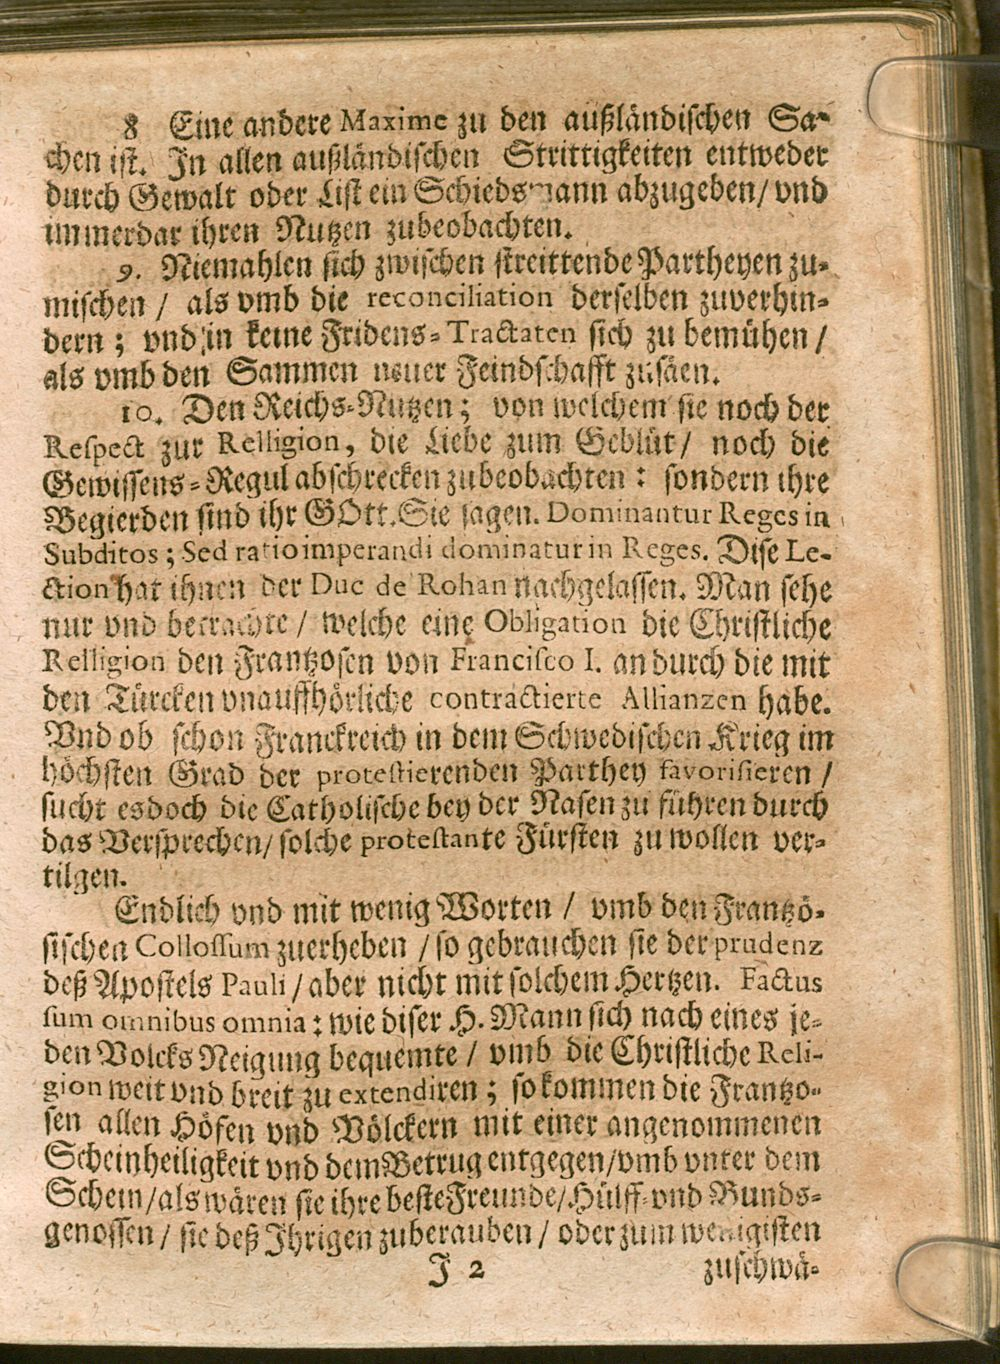 8 Eine andere Maxime zu den außländischen Sa-
chen ist. In allen außländischen Strittigkeiten entweder
durch Gewalt oder List ein Schiedsmann abzugeben/ vnd
immerdar ihren Nutzen zubeobachten.
9. Niemahlen sich zwischen streittende Partheyen zu-
mischen / als vmb die reconciliation derselben zuverhin-
dern ; vnd in keine Fridens-Tractaten sich zu bemühen /
als vmb den Sammen neuer Feindschafft zusäen.
10. Den Reichs-Nutzen ; von welchem sie noch der
Respect zur Relligion, die Liebe zum Geblüt / noch die
Gewissens-Regul abschrecken zubeobachten : sondern ihre
Begierden sind ihr GOtt. Sie sagen. Dominantur Reges in
Subditos ; Sed ratio imperandi dominatur in Reges. Dise Le-
ction hat ihnen der Duc de Rohan nachgelassen. Man sehe
nur vnd betrachte / welche eine Obligation die Christliche
Relligion den Frantzosen von Francisco I. an durch die mit
den Türcken vnauffhörliche contractierte Allianzen habe.
Vnd ob schon Franckreich in dem Schwedischen Krieg im
höchsten Grad der protestierenden Parthey favorisieren /
sucht es doch die Catholische bey der Nasen zu führen durch
das Versprechen/ solche protestante Fürsten zu wollen ver-
tilgen.
Endlich vnd mit wenig Worten / vmb den Frantzö-
sischen Collossum zuerheben / so gebrauchen sie der prudenz
deß Apostels Pauli / aber nicht mit solchem Hertzen. Factus
sum omnibus omnia : wie diser H. Mann sich nach eines je-
den Volcks Neigung bequemte / vmb die Christliche Reli-
gion weit vnd breit zu extendiren ; so kommen die Frantzo-
sen allen Höfen vnd Völckern mit einer angenommenen
Scheinheiligkeit vnd dem Betrug entgegen/ vmb vnter dem
Schein/ als wären sie ihre beste Freunde/ Hülff- vnd Bunds-
genossen / sie deß Ihrigen zuberauben / oder zum wenigisten
J 2 zuschwä-